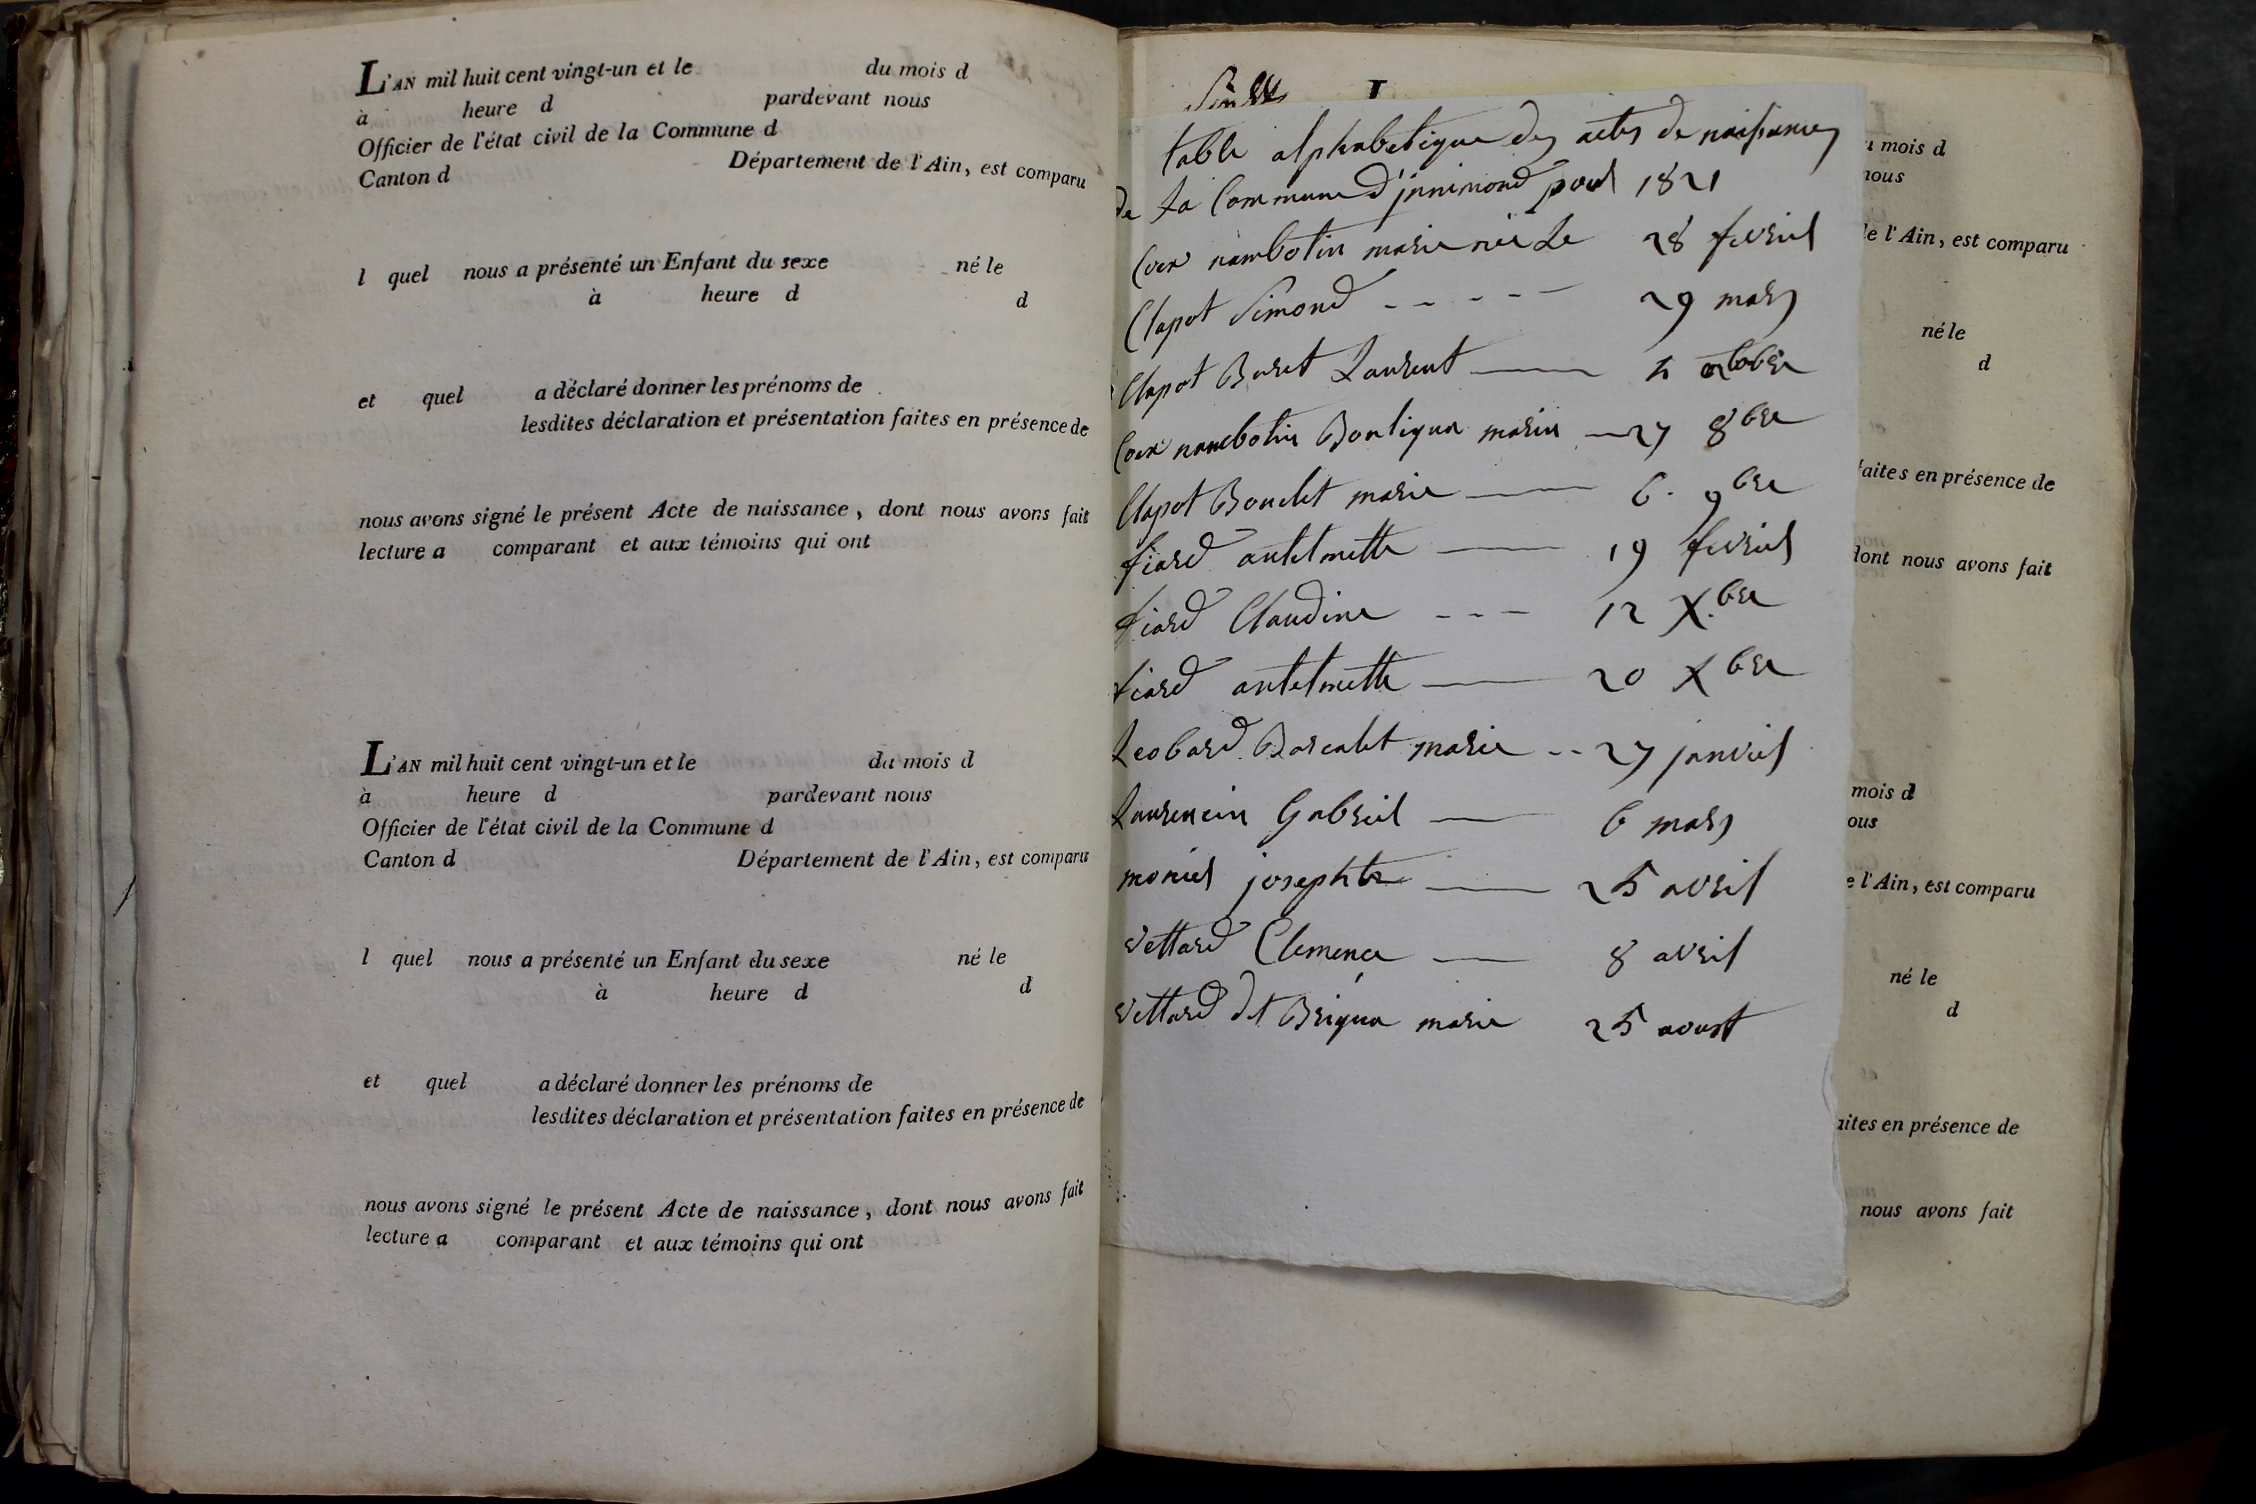 L'AN mil huit cent vingt-un et le du mois d
à heure d pardevant nous
Officier de l'état civil de la Commune d
Canton d Département de l'Ain, est comparu
l quel nous a présenté un Enfant du sexe né le
à heure d d
et quel a déclaré donner les prénoms de
lesdites déclaration et présentation faites en présence de
nous avons signé le présent Acte de naissance, dont nous avons fait
lecture a comparant et aux témoins qui ont
L'AN mil huit cent vingt-un et le du mois d
à heure d pardevant nous
Officier de l'état civil de la Commune d
Canton d Département de l'Ain, est comparu
l quel nous a présenté un Enfant du sexe né le
à heure d d
et quel a déclaré donner les prénoms de
lesdites déclaration et présentation faites en présence de
nous avons signé le présent Acte de naissance, dont nous avons fait
lecture a comparant et aux témoins qui ont
table alphabetique des actes de naissances
de la Commune d'innimond pour 1821
Coux nambotin marie née le 28 fevrier
Clapot Simond - - - - - 29 mars
Clapot Buret Laurent — octobre
Coux nambotin marie — 27 8bre
Clapot Boudet marie — 6. 9bre
fiard antelmette — 19 fevrier
fiard Claudine - - - 12 Xbre
fiard antelmette — 20 Xbre
Leobard Barcalet marie - - 27 janvier
Laurencin Gabriel — 6 mars
monier josephte — 25 avril
vettard Clemence — 8 avril
vettard dt Briqua marie 25 aoust
mois d
nous
de l'Ain, est comparu
né le
d
faites en présence de
dont nous avons fait
mois d
ous
e l'Ain, est comparu
né le
d
aites en présence de
nous avons fait